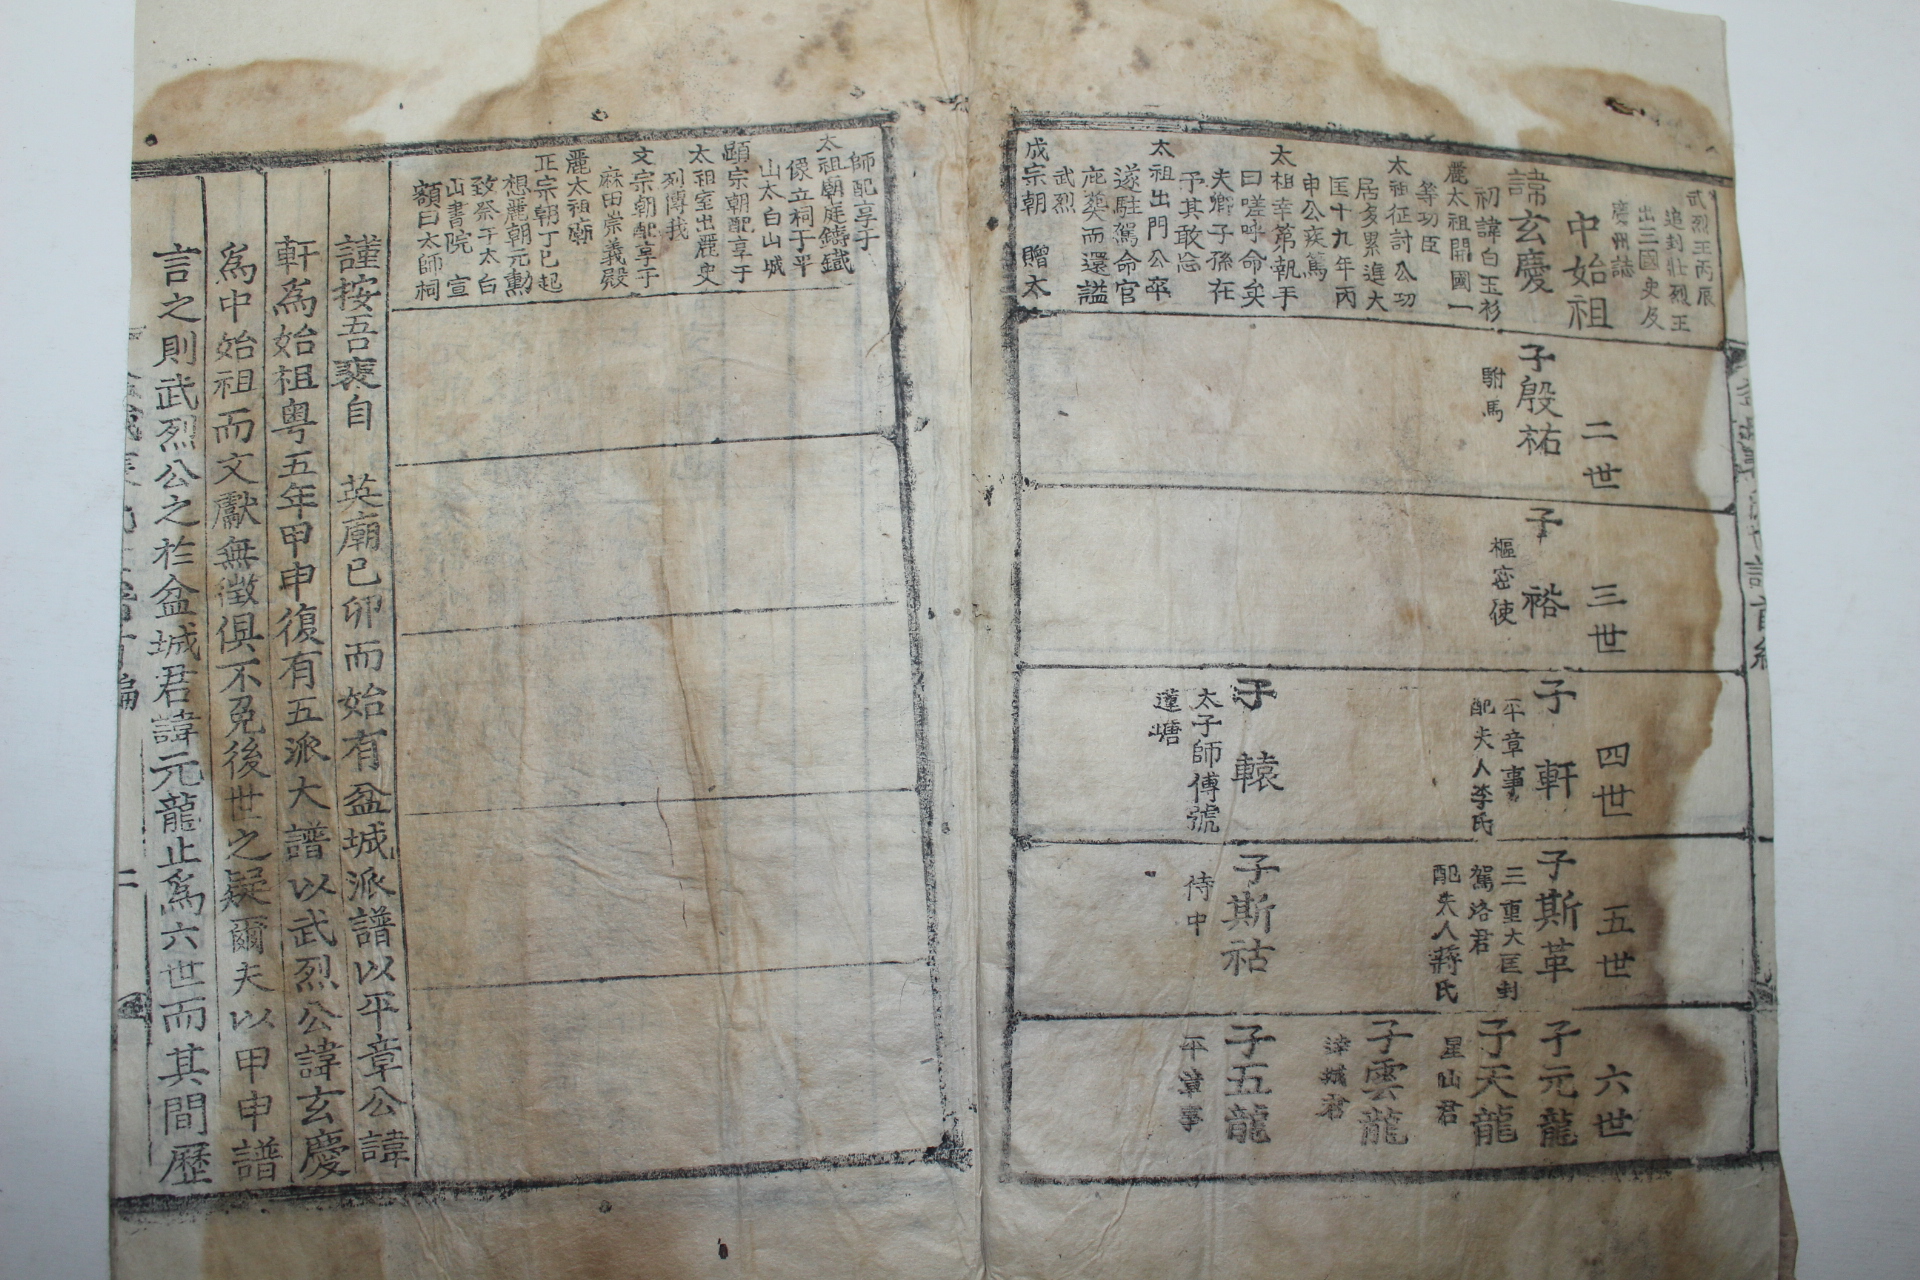 武烈王丙辰
追封壯烈王
出三國史及
慶州誌
中始祖
諱玄慶
初諱白玉衫
麗太祖開國一
等功臣
太祖征討公功
居多累進大
匡十九年丙
申公疾篤
太祖幸第執手
曰嗟呼命矣
夫卿子孫在
予其敢忘
太祖出門公卒
遂駐駕命官
庀葬而還謚
武烈
成宗朝 贈太
二世
子殷祐
駙馬
三世
子 裕
樞密使
四世
子 軒
平章事
配夫人李氏
子 轅
太子師傅號
蓮塘
五世
子斯革
三重大匡封
駕洛君
配夫人蔣氏
子斯祜
侍中
六世
子元龍
子天龍
星山君
子雲龍
君
子五龍
平章事
師配享于
太祖廟庭鑄鐵
像立祠于平
山太白山城
顯宗朝配享于
太祖室出麗史
列傳我
文宗朝配享于
麻田崇義殿
麗太祖廟
正宗朝丁巳起
想麗朝元勳
致祭于太白
山書院 宣
額曰太師祠
謹按吾裵自 英廟己卯而始有盆城派譜以平章公諱
軒爲始祖粤五年甲申復有五派大譜以武烈公諱玄慶
爲中始祖而文獻無徵俱不免後世之疑爾夫以甲申譜
言之則武烈公之於盆城君諱元龍止爲六世而其間歷
二